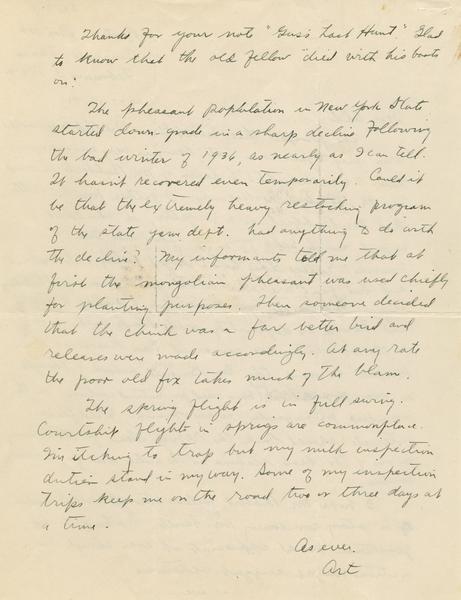 Thanks for your note "Gus's Last Hunt." Glad
to know that the old fellow "died with his boots
on."
The pheasant population in New York State
started down-grade in a sharp decline following
the bad winter of 1936, as nearly as I can tell.
It hasn't recovered even temporarily. Could it
be that the extremely heavy restocking program
of the state game dept. had anything to do with
the decline? My informants told me that at
first the mongolian pheasant was used chiefly
for planting purposes. Then someone decided
that the chink was a far better bird and
releases were made accordingly. At any rate
the poor old fox takes much of the blame.
The spring flight is in full swing.
Courtship flights in springs are commonplace.
I'm itching to trap but my milk inspection
duties stand in my way. Some of my inspection
trips keep me on the road two or three days at
a time.
As ever.
Art